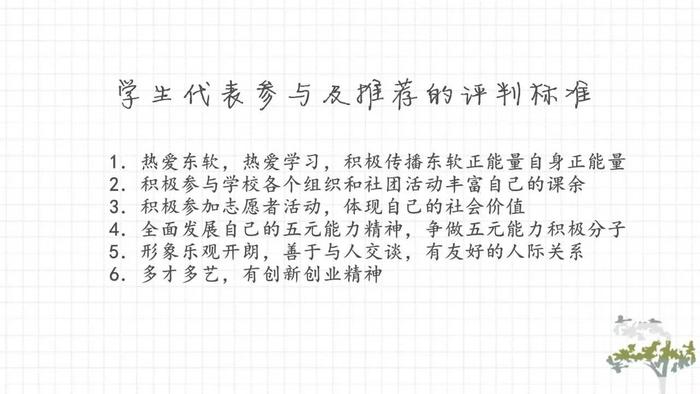 学生代表参与及推荐的评判标准
1. 热爱东软，热爱学习，积极传播东软正能量自身正能量
2. 积极参与学校各个组织和社团活动丰富自己的课余
3. 积极参加志愿者活动，体现自己的社会价值
4. 全面发展自己的五元能力精神，争做五元能力积极分子
5. 形象乐观开朗，善于与人交谈，有友好的人际关系
6. 多才多艺，有创新创业精神